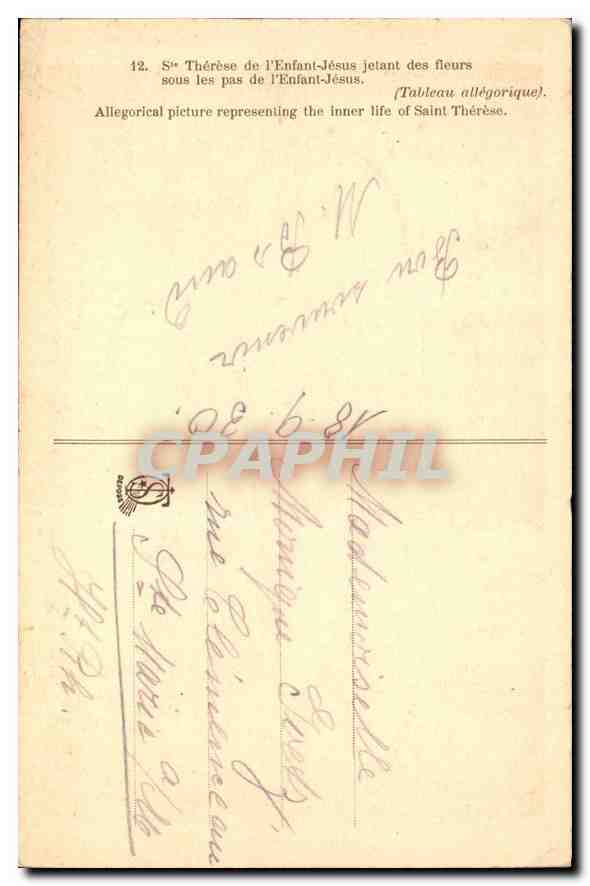 12. Ste Thérèse de l'Enfant-Jésus jetant des fleurs
sous les pas de l'Enfant-Jésus.
(Tableau allégorique).
Allegorical picture representing the inner life of Saint Thérèse.
Bon souvenir
M.
18. 9. 30.
CPAPHIL
DEPOSE
Mademoiselle
Monique
rue Clémenceau
Ste Marie a/